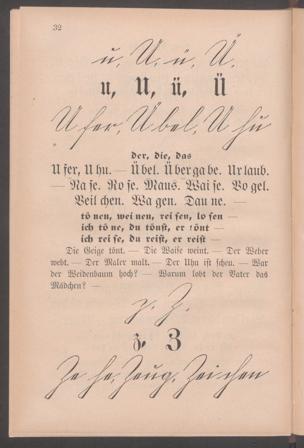 32
u, U, ü, Ü.
u, U, ü, Ü
Ufer, Übel, Uhu
der, die, das
U fer, U hu. — Ü bel. Ü ber ga be. Ur laub.
— Na se. Ro se. Maus. Wai se. Vo gel.
Veil chen. Wa gen. Dau ne. —
tö nen, wei nen, rei sen, lo sen —
ich tö ne, du tönst, er tönt —
ich rei se, du reist, er reist —
Die Geige tönt. — Die Waise weint. — Der Weber
webt. — Der Maler malt. — Der Uhu ist scheu. — War
der Weidenbaum hoch? — Warum lobt der Vater das
Mädchen? —
z, Z.
z, Z
Ze he, Zeug, Zei chen